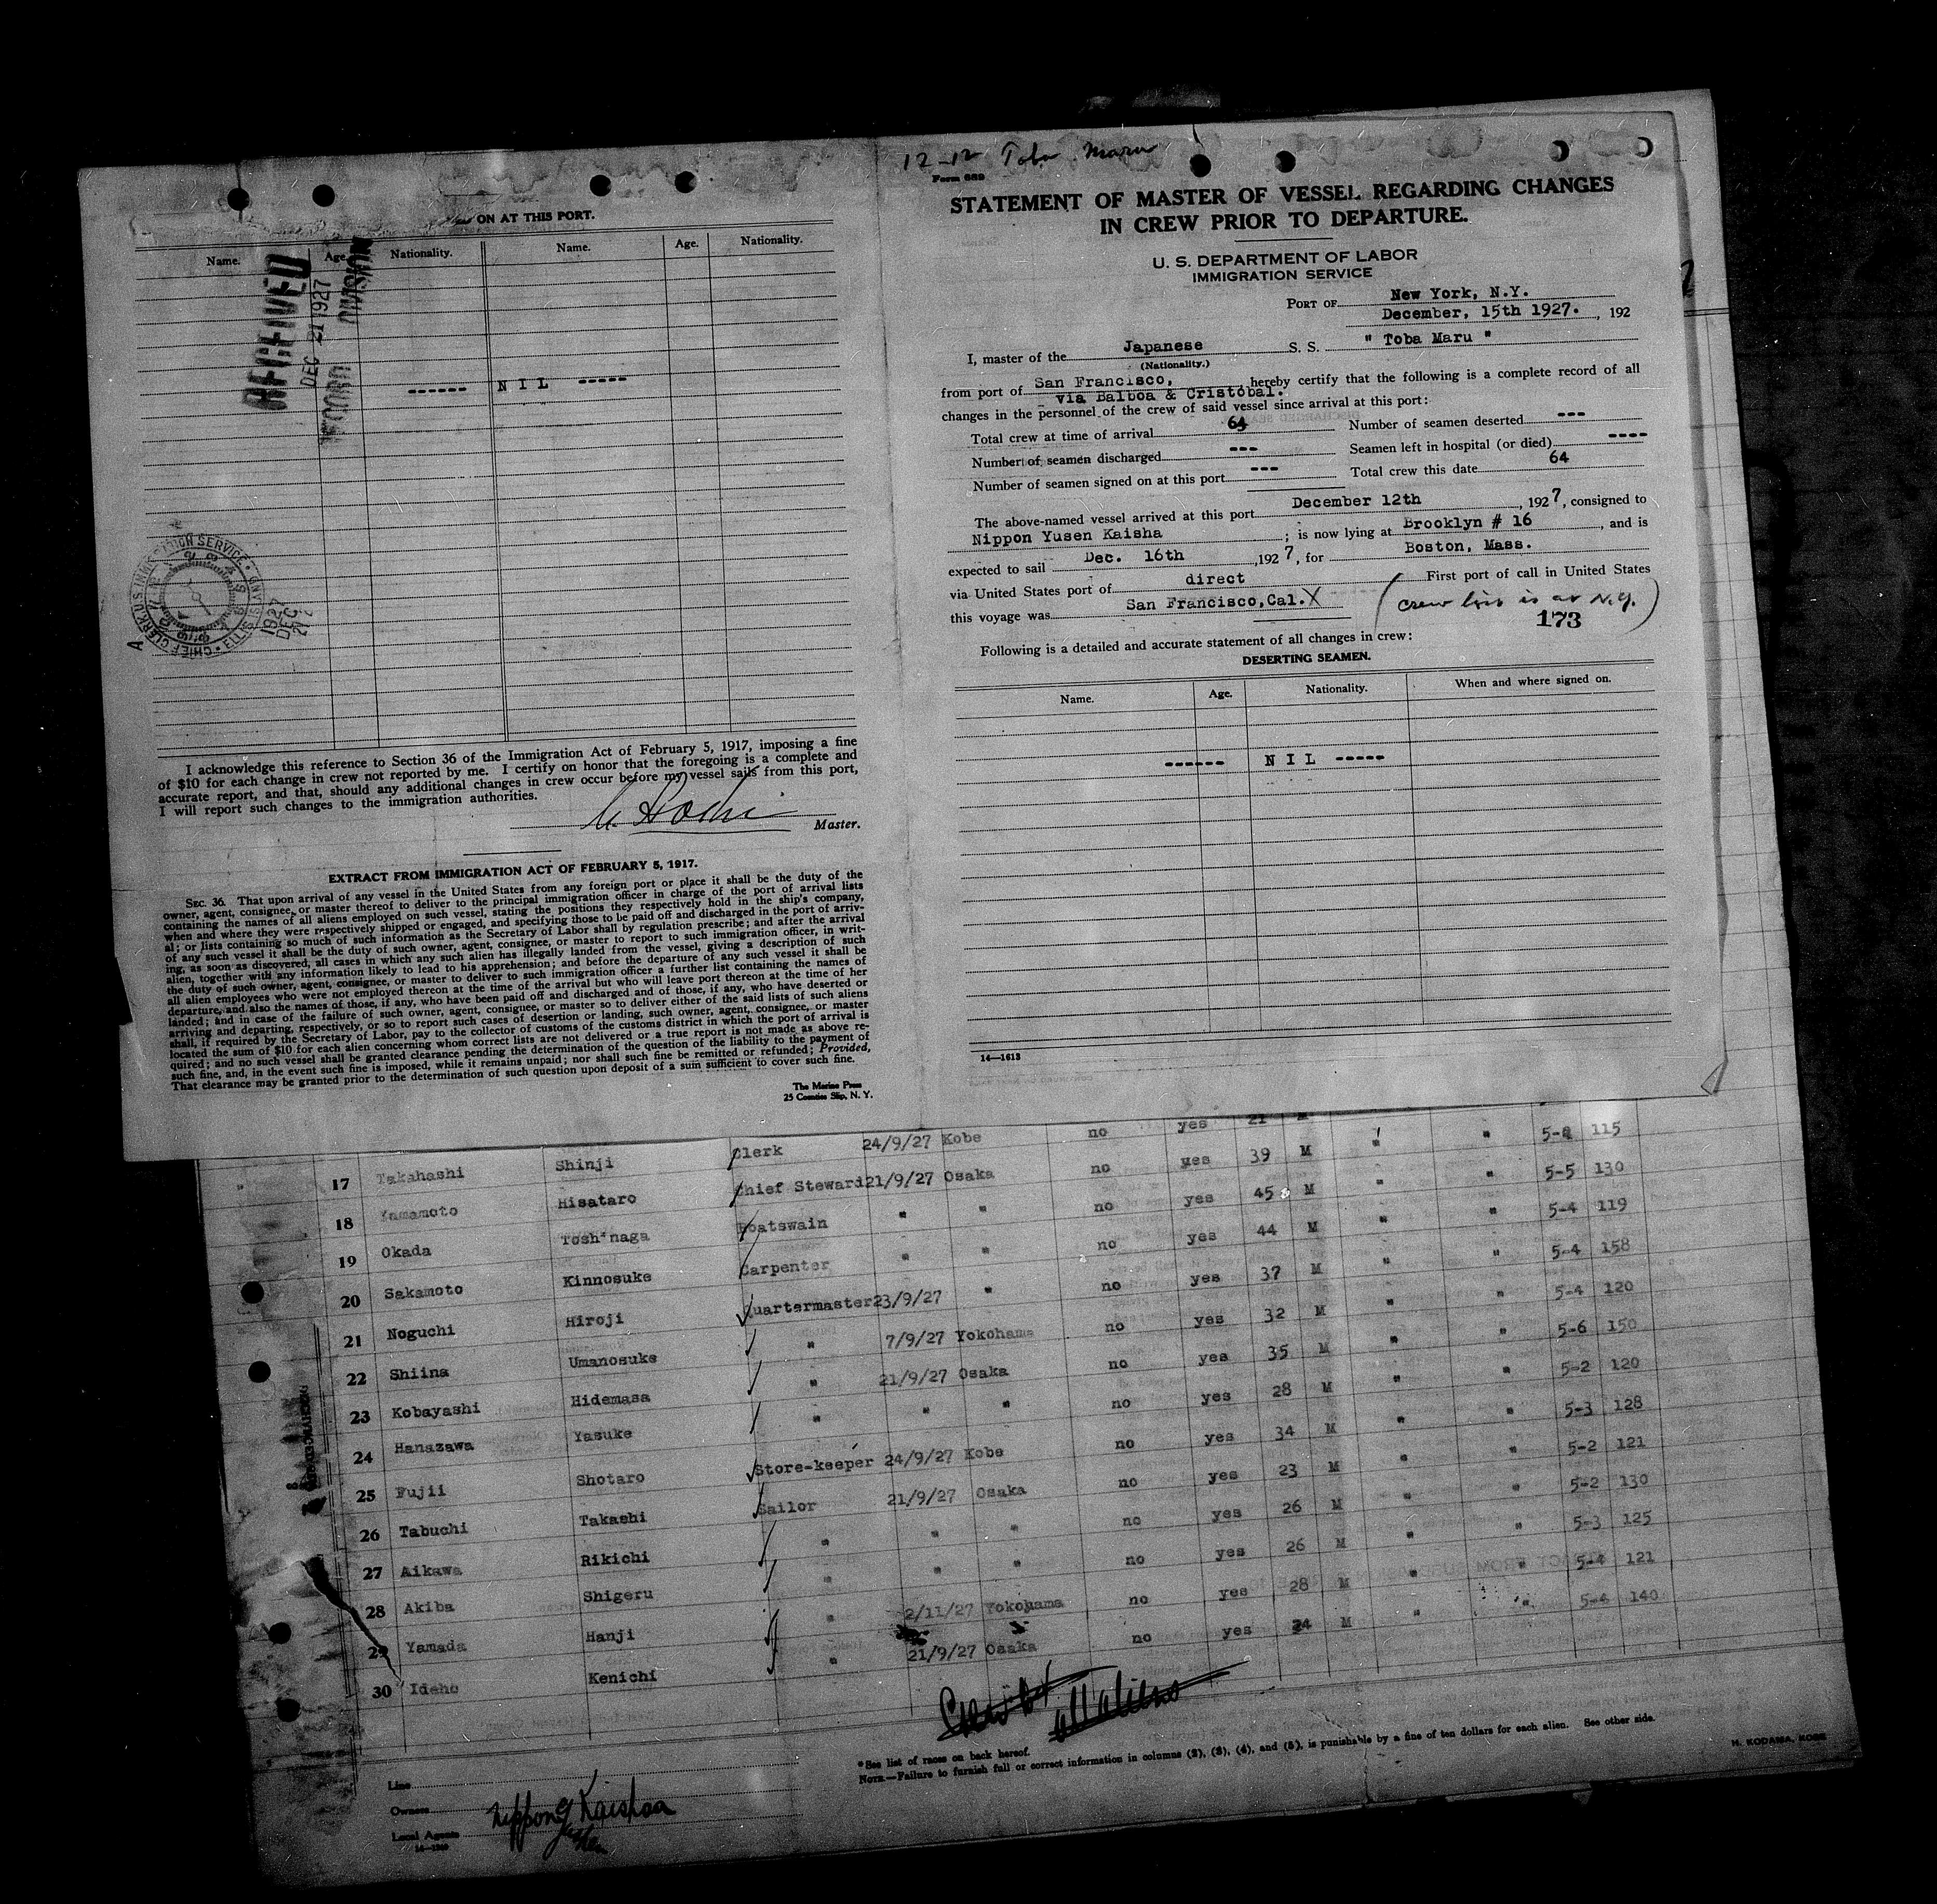 12-12 Toba Maru
ON AT THIS PORT.
Name. Age. Nationality. Name. Age. Nationality.
RECEIVED
DEC 21 1927
RECORD DIVISION
------ N I L -----
CHIEF CLERK, U.S. IMMIGRATION SERVICE • ELLIS ISLAND
1927
DEC
21
I acknowledge this reference to Section 36 of the Immigration Act of February 5, 1917, imposing a fine
of $10 for each change in crew not reported by me. I certify on honor that the foregoing is a complete and
accurate report, and that, should any additional changes in crew occur before my vessel sails from this port,
I will report such changes to the immigration authorities.
Master.
EXTRACT FROM IMMIGRATION ACT OF FEBRUARY 5, 1917.
SEC. 36. That upon arrival of any vessel in the United States from any foreign port or place it shall be the duty of the
owner, agent, consignee, or master thereof to deliver to the principal immigration officer in charge of the port of arrival lists
containing the names of all aliens employed on such vessel, stating the positions they respectively hold in the ship's company,
when and where they were respectively shipped or engaged, and specifying those to be paid off and discharged in the port of arriv-
al; or lists containing so much of such information as the Secretary of Labor shall by regulation prescribe; and after the arrival
of any such vessel it shall be the duty of such owner, agent, consignee, or master to report to such immigration officer, in writ-
ing, as soon as discovered, all cases in which any such alien has illegally landed from the vessel, giving a description of such
alien, together with any information likely to lead to his apprehension; and before the departure of any such vessel it shall be
the duty of such owner, agent, consignee, or master to deliver to such immigration officer a further list containing the names of
all alien employees who were not employed thereon at the time of the arrival but who will leave port thereon at the time of her
departure, and also the names of those, if any, who have been paid off and discharged and of those, if any, who have deserted or
landed; and in case of the failure of such owner, agent, consignee, or master so to deliver either of the said lists of such aliens
arriving and departing, respectively, or so to report such cases of desertion or landing, such owner, agent, consignee, or master
shall, if required by the Secretary of Labor, pay to the collector of customs of the customs district in which the port of arrival is
located the sum of $10 for each alien concerning whom correct lists are not delivered or a true report is not made as above re-
quired; and no such vessel shall be granted clearance pending the determination of the question of the liability to the payment of
such fine, and, in the event such fine is imposed, while it remains unpaid; nor shall such fine be remitted or refunded; Provided,
That clearance may be granted prior to the determination of such question upon deposit of a sum sufficient to cover such fine.
The Marine Press
25 Coenties Slip, N. Y.
Form 689
STATEMENT OF MASTER OF VESSEL REGARDING CHANGES
IN CREW PRIOR TO DEPARTURE.
U. S. DEPARTMENT OF LABOR
IMMIGRATION SERVICE
PORT OF New York, N.Y.
December, 15th 1927. , 192
I, master of the Japanese S. S. " Toba Maru "
(Nationality.)
from port of San Francisco, via Balboa & Cristobal. , hereby certify that the following is a complete record of all
changes in the personnel of the crew of said vessel since arrival at this port:
Total crew at time of arrival 64 Number of seamen deserted ---
Number of seamen discharged --- Seamen left in hospital (or died) ----
Number of seamen signed on at this port --- Total crew this date 64
The above-named vessel arrived at this port December 12th , 1927, consigned to
Nippon Yusen Kaisha ; is now lying at Brooklyn # 16 , and is
expected to sail Dec. 16th , 1927, for Boston, Mass.
via United States port of direct First port of call in United States
this voyage was San Francisco, Cal. X (crew list is at N.Y.)
173
Following is a detailed and accurate statement of all changes in crew:
DESERTING SEAMEN.
Name. Age. Nationality. When and where signed on.
------ N I L -----
14—1613
17 Takahashi Shinji Clerk 24/9/27 Kobe no yes 21 M " " 5-2 115
18 Yamamoto Hisataro Chief Steward 21/9/27 Osaka no yes 39 M " " 5-5 130
19 Okada Tosh naga Boatswain " " no yes 45 M " " 5-4 119
20 Sakamoto Kinnosuke Carpenter " " no yes 44 M " " 5-4 158
21 Noguchi Hiroji Quartermaster 23/9/27 " no yes 37 M " " 5-4 120
22 Shiina Umanosuke " 7/9/27 Yokohama no yes 32 M " " 5-6 150
23 Kobayashi Hidemasa " 21/9/27 Osaka no yes 35 M " " 5-2 120
24 Hanazawa Yasuke " " " no yes 28 M " " 5-3 128
25 Fujii Shotaro Store-keeper 24/9/27 Kobe no yes 34 M " " 5-2 121
26 Tabuchi Takashi Sailor 21/9/27 Osaka no yes 23 M " " 5-2 130
27 Aikawa Rikichi " " " no yes 26 M " " 5-3 125
28 Akiba Shigeru " " " no yes 26 M " " 5-4 121
29 Yamada Hanji " 2/11/27 Yokohama no yes 28 M " " 5-4 140
30 Ideno Kenichi " 21/9/27 Osaka no yes 24 M
Crew list all aliens
*See list of races on back hereof.
NOTE.—Failure to furnish full or correct information in columns (2), (3), (4), and (5), is punishable by a fine of ten dollars for each alien. See other side.
H. KODAMA, KOBE
Line
Owners
Local Agents Nippon Yusen Kaisha